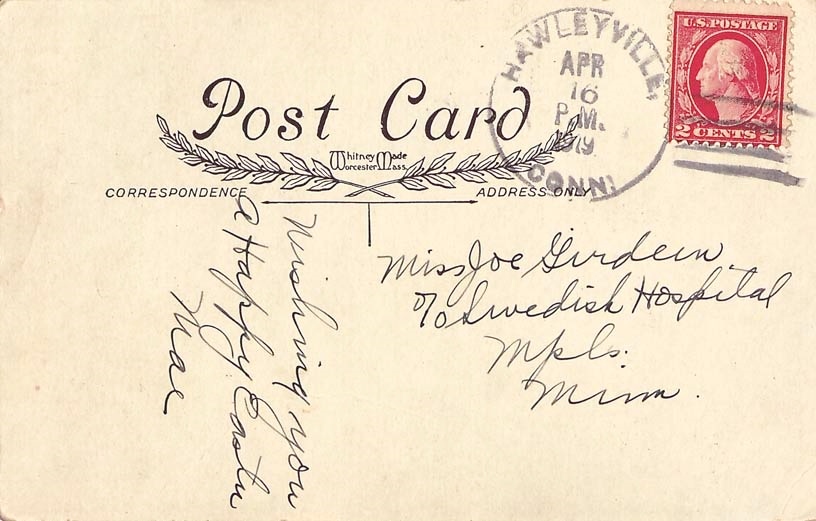 Post Card
Whitney Made
Worcester Mass.
CORRESPONDENCE
ADDRESS ONLY
HAWLEYVILLE,
APR
16
P.M.
1919
CONN.
U.S. POSTAGE
2 CENTS 2
Wishing you
a Happy Easter
Mae
Miss Joe Girdeen
c/o Swedish Hospital
Mpls.
Minn.